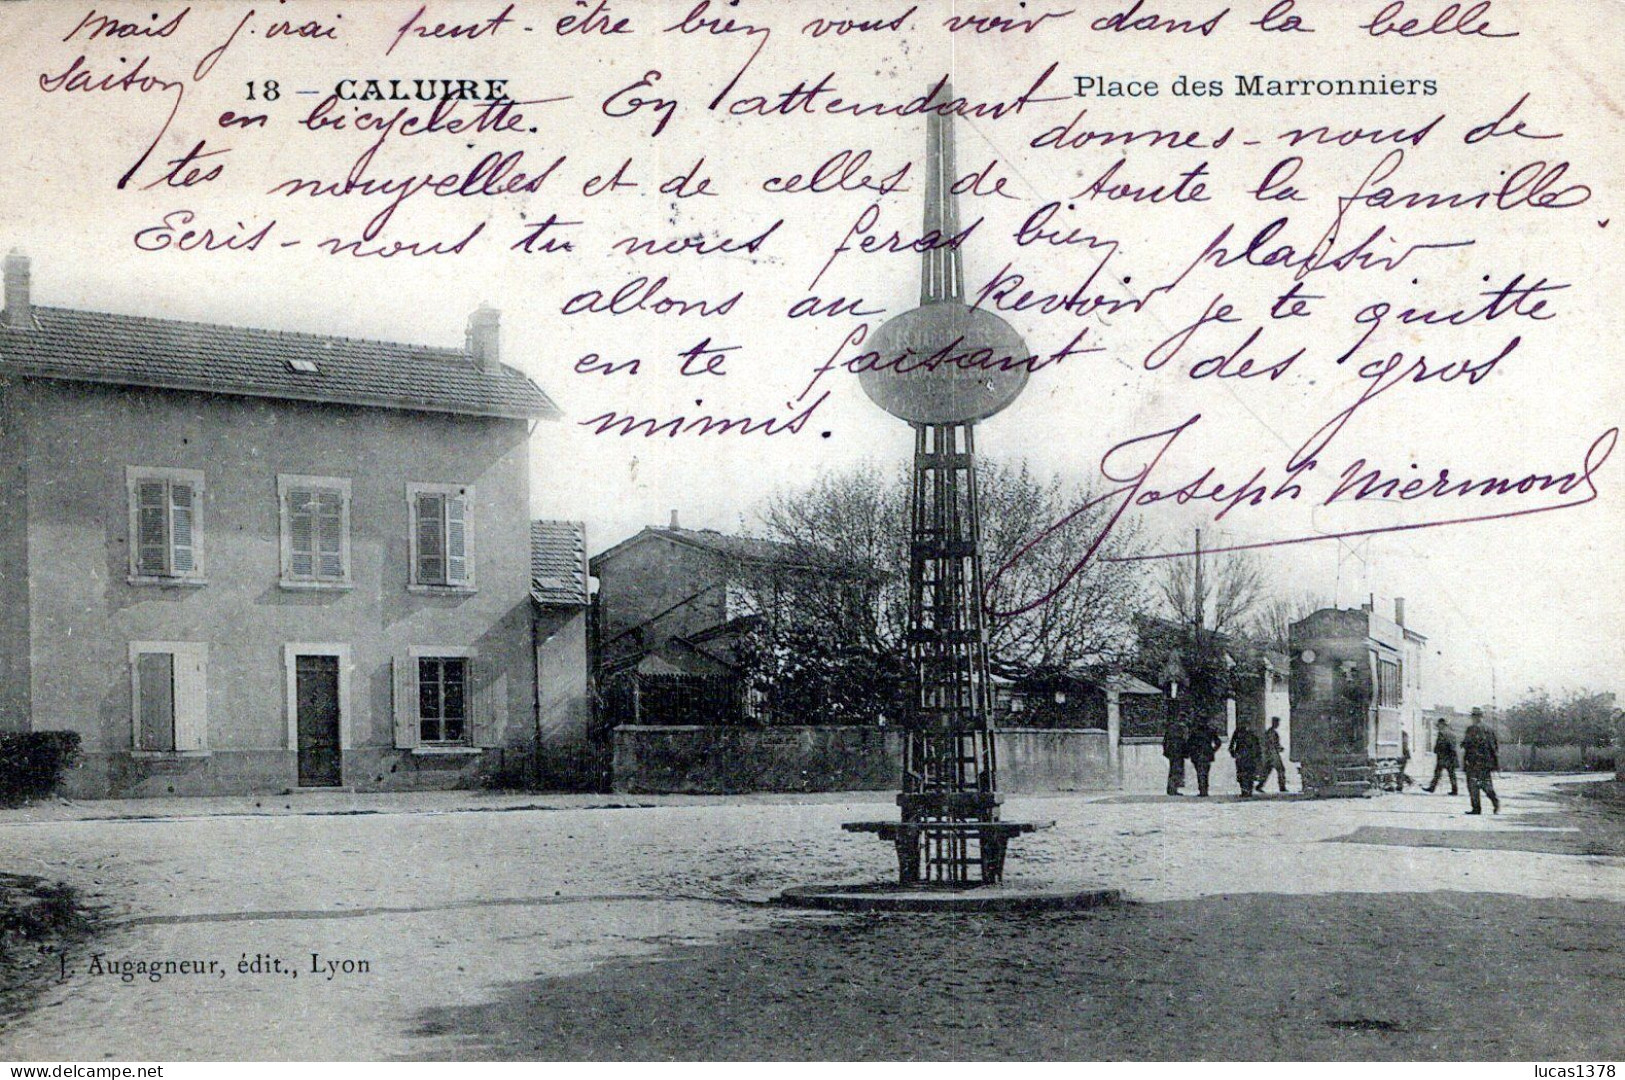 Mais j'irai peut-être bien vous voir dans la belle
saison
18 – CALUIRE
Place des Marronniers
en bicyclette. En attendant donnes-nous de
tes nouvelles et de celles de toute la famille.
Ecris-nous tu nous feras bien plaisir
allons au Revoir je te quitte
en te faisant des gros
mimis.
Joseph
J. Augagneur, édit., Lyon
delcampe.net
lucas1378